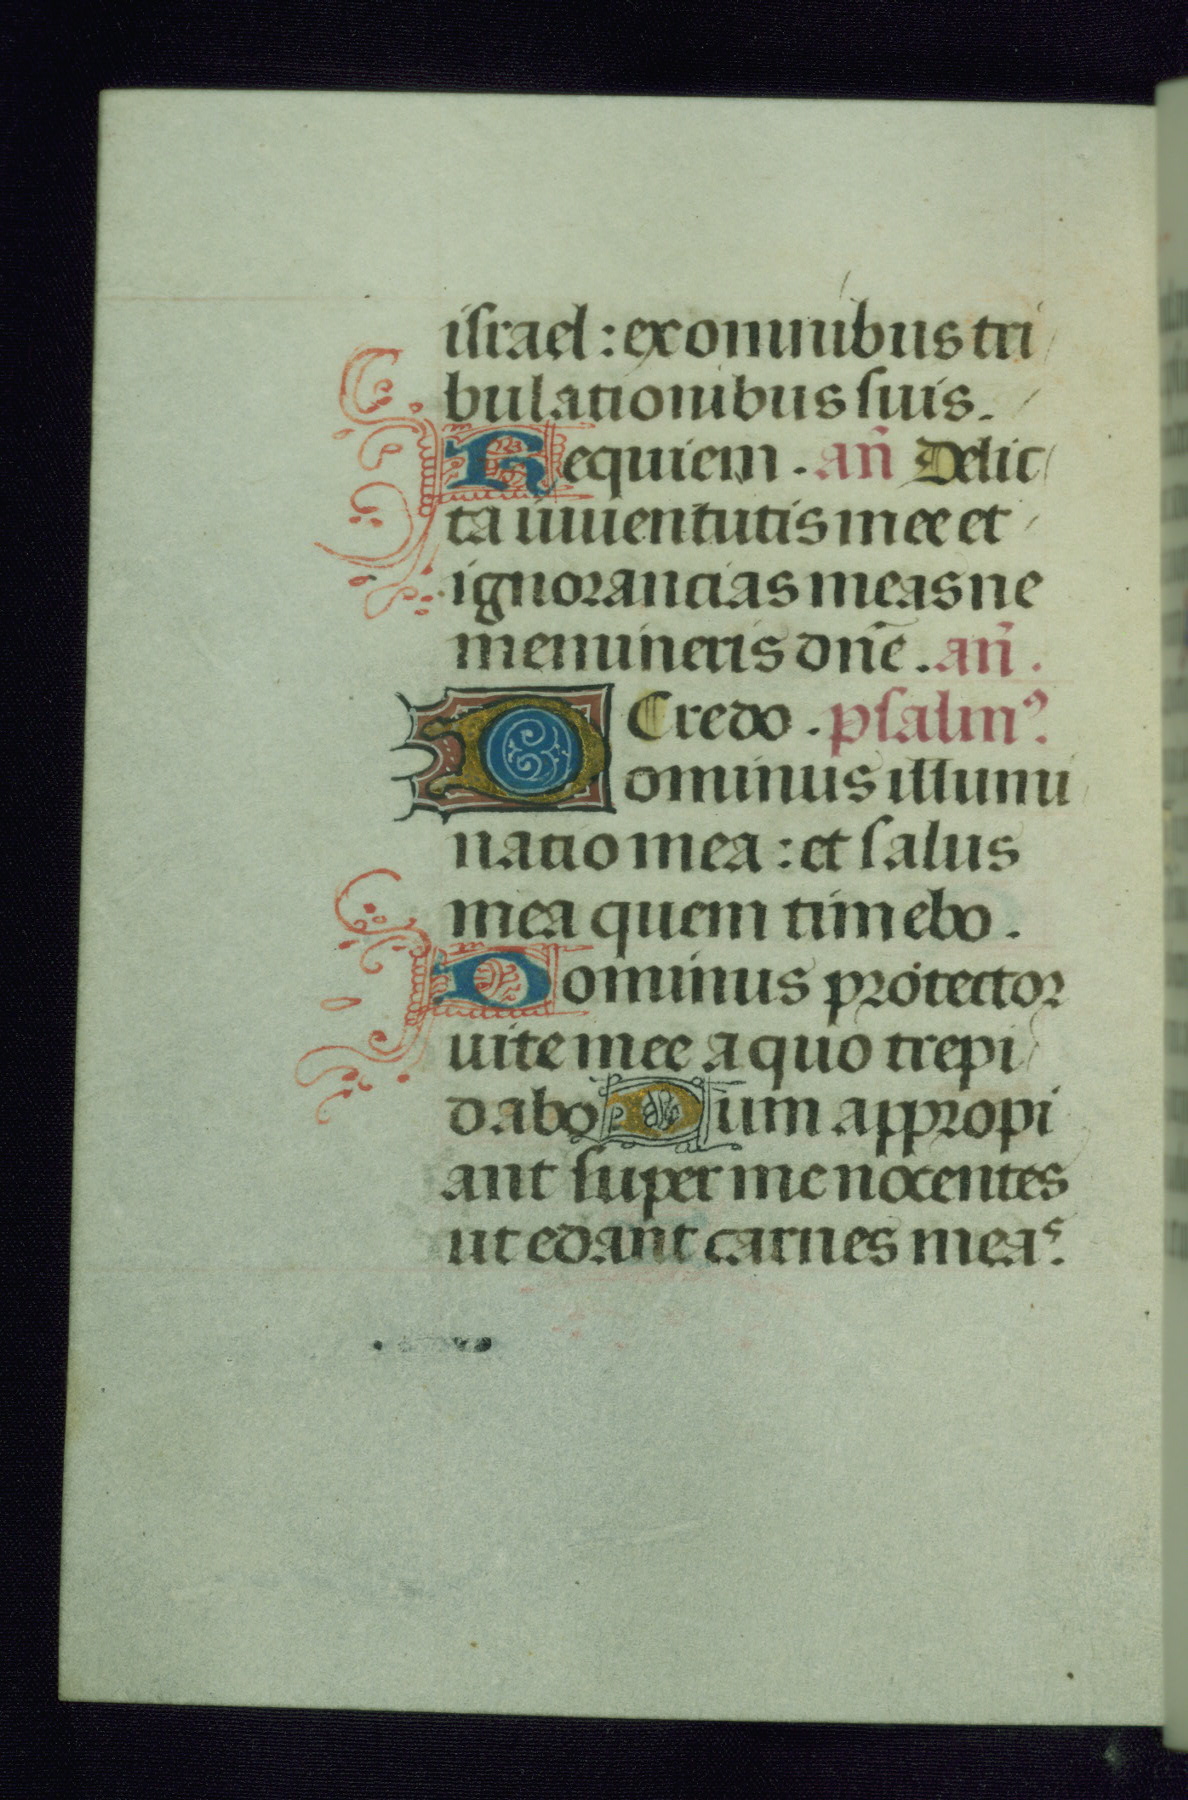 israel : ex omnibus tri
bulationibus suis.
Requiem . an̄ Delic
ta iuuentutis mee et
ignorancias meas ne
memineris dn̄e . an̄ .
Credo . psalmꝰ.
Dominus illumi
natio mea : et salus
mea quem timebo .
Dominus protector
uite mee a quo trepi
dabo Dum appropi
ant super me nocentes
ut edant carnes meas.